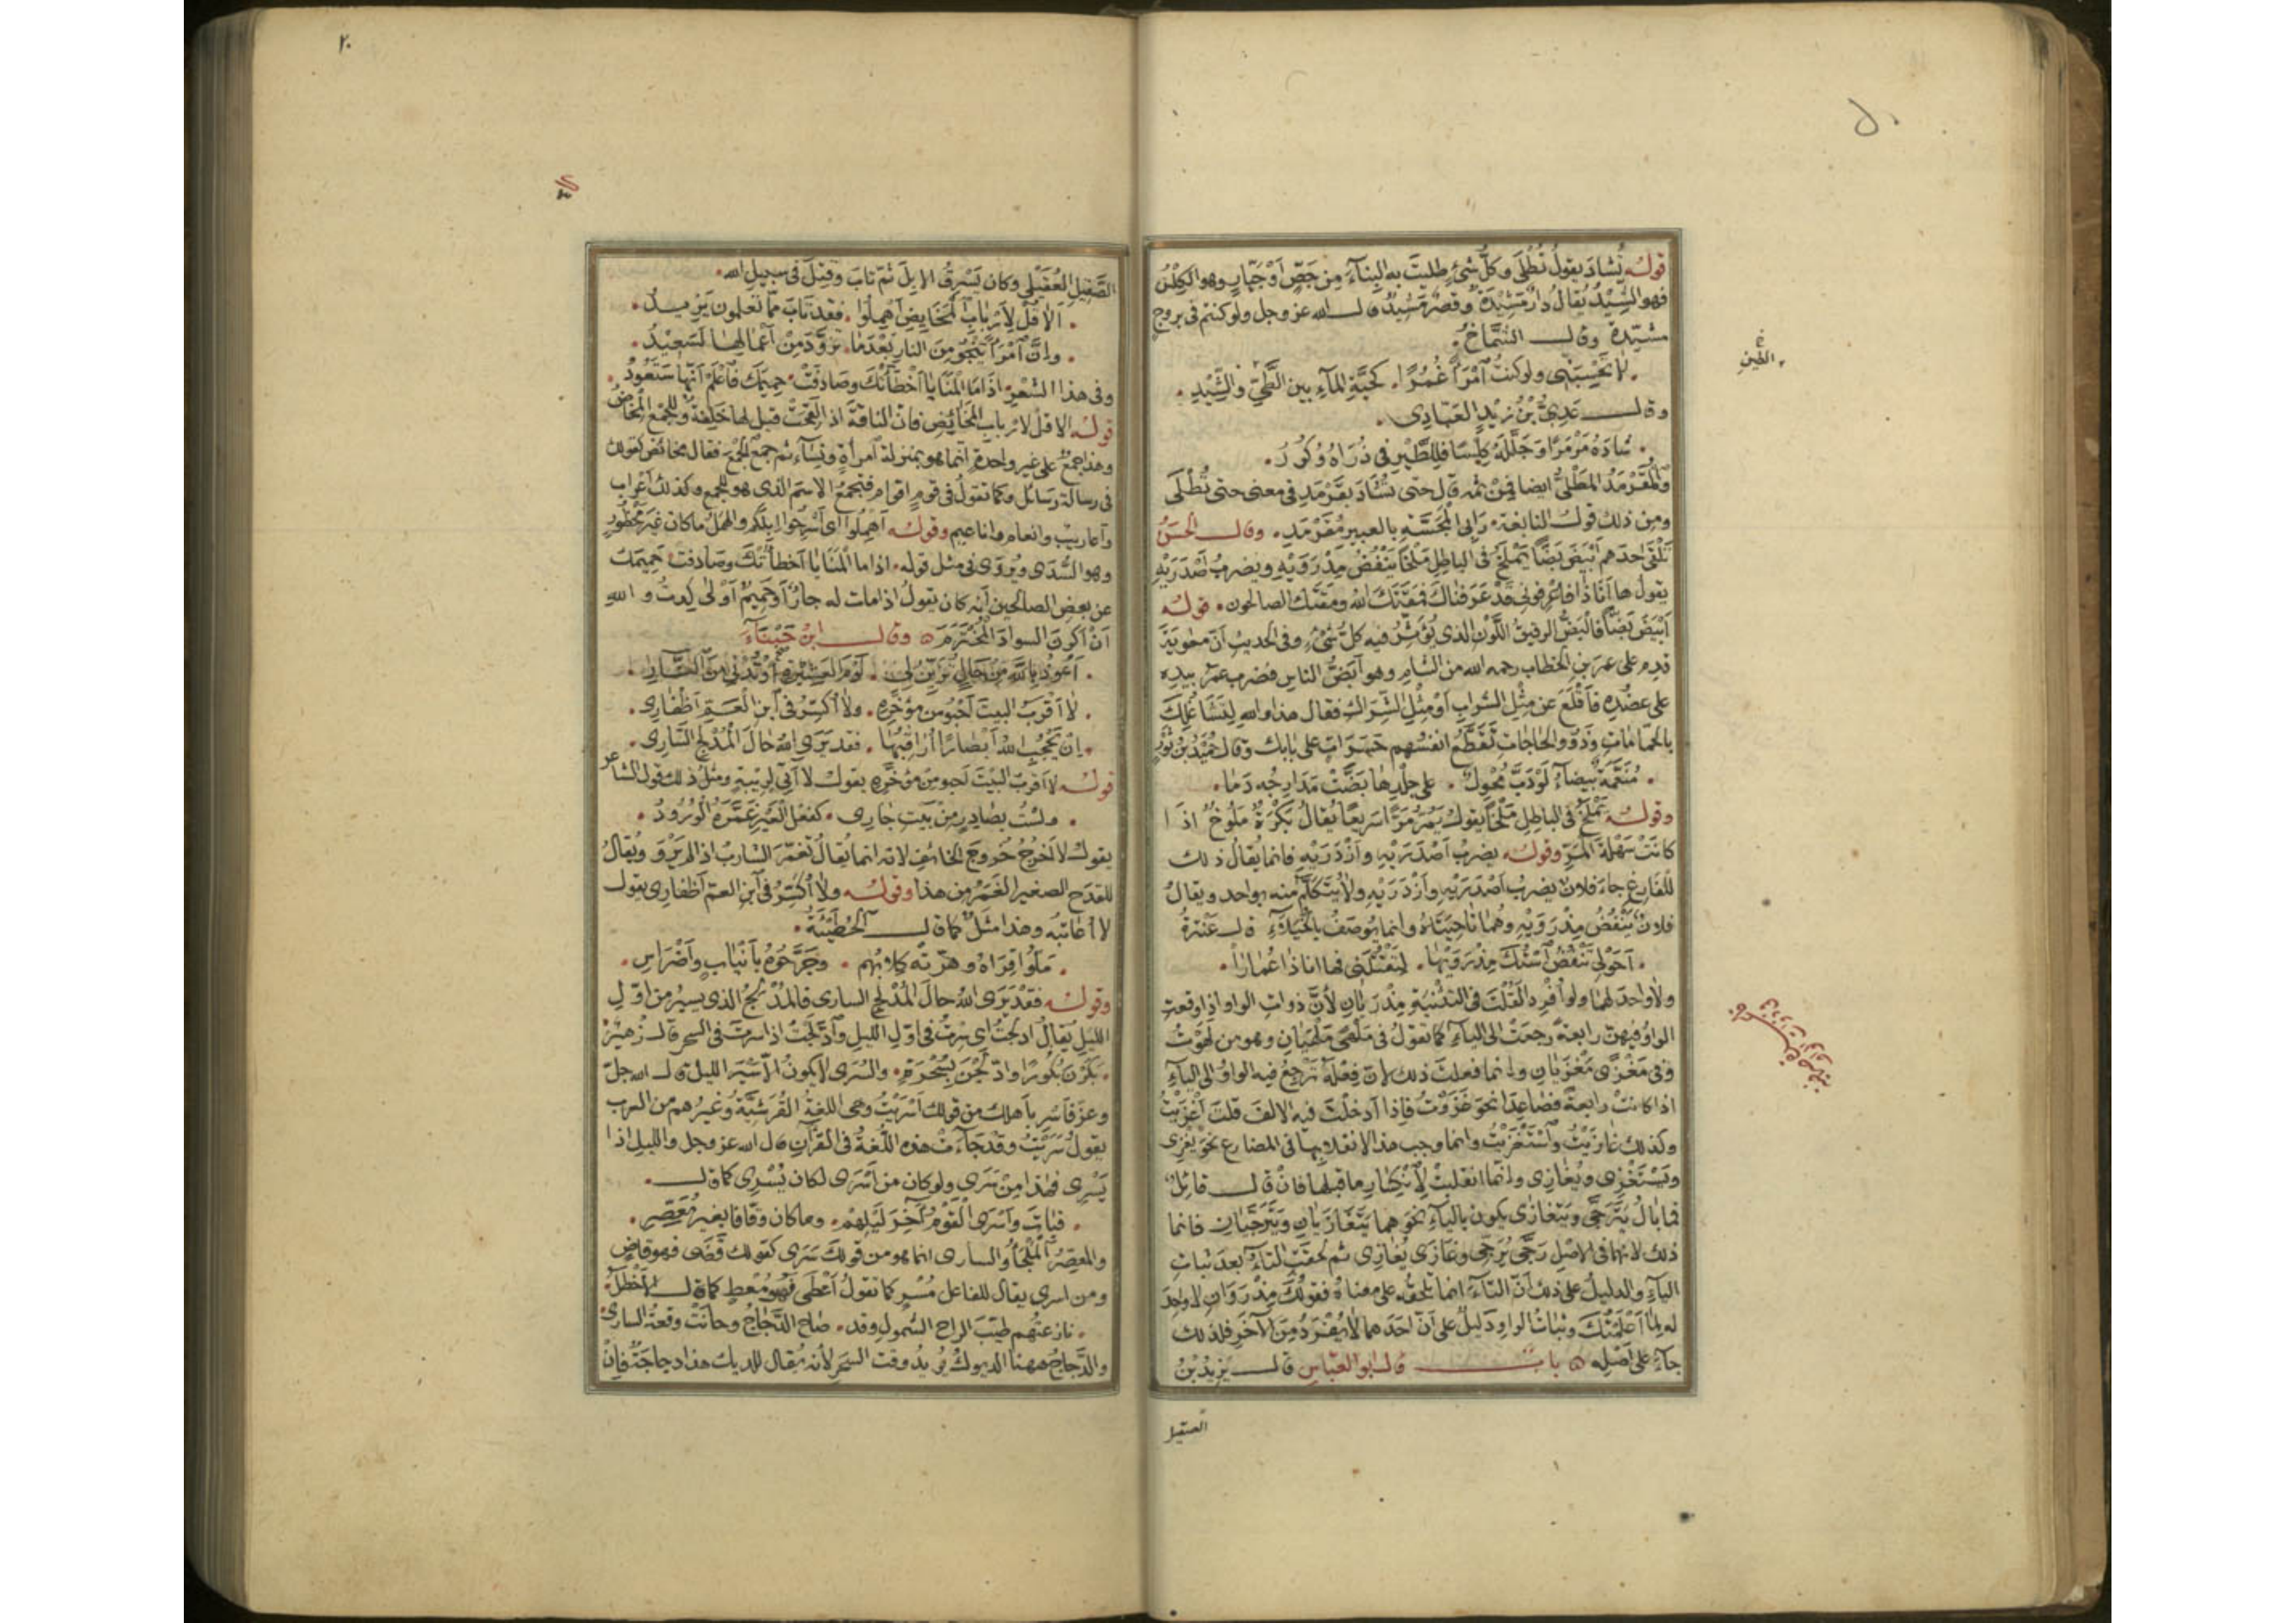 قوله تُشاد يقول تُطلى وكل شئ طليت به البناء من جص او جيار وهو الكلس
فهو الشيد يقال دار مشيدة وقصر مشيد قال الله عز وجل ولو كنتم فى بروج
مشيدة وقال الشماخ
لا تحسبنى ولو كنت امرأ غمرا كحية الماء بين الطى والشيد
خ الطين
وقال عدى بن زيد العبادى
شاده مرمرا وجلله كلسا فللطير فى ذراه وكور
والمقرمد المطلى ايضا فمن ثمه قال حتى تشاد بقرمد فى معنى حتى تطلى
ومن ذلك قول النابغة رابى المجسة بالعبير مقرمد وقال الحسن
تلقى احدهم ابيض بضا يملخ فى الباطل ملخا ينفض مذرويه ويضرب اصدريه
يقول ها انا ذا فاعرفونى قد عرفناك فمقتك الله ومقتك الصالحون قوله
ابيض بضا فالبض الرقيق اللون الذى يؤثر فيه كل شئ وفى الحديث ان معوية
قدم على عمر بن الخطاب رحمه الله من الشام وهو ابض الناس فضرب عمر بيده
على عضده فاقلع عن مثل الشراب او مثل الشراك فقال هذا والله لتشاغلك
بالحمامات وذوو الحاجات تقطع انفسهم حسرات على بابك وقال حميد بن ثور
منعمة بيضاء لو دب محول على جلدها بضت مدارجه دما
وقوله يملخ فى الباطل ملخا يقول يمر مرا سريعا يقال بكرة ملوخ اذا
كانت سهلة المر وقوله يضرب اصدريه وازدريه فانما يقال ذلك
للفارغ جاء فلان يضرب اصدريه وازدريه ولا يتكلم منه بواحد ويقال
فلان ينفض مذرويه وهما ناحيتاه وانما يوصف بالخيلاء قال عنترة
احولى تنفض استك مذرويها لتقتلنى فها انا ذا عمارا
ولا واحد لهما ولو افرد لقلت فى التثنية مذريان لان ذوات الواو اذا وقعت
الواو فيهن رابعة رجعت الى الياء كما تقول فى ملهى ملهيان وهو من لهوت
وفى مغزى مغزيان وانما فعلت ذلك لان فعله ترجع فيه الواو الى الياء
اذا كانت رابعة فصاعدا نحو غزوت فاذا ادخلت فيه الالف قلت اغزيت
وكذلك غازيت واستغزيت وانما وجب هذا الانقلابها فى المضارع نحو يغزى
ويستغزى ويغازى وانما انقلبت لانكسار ما قبلها فان قال قائل
فما بال يترجى ويتغازى يكون بالياء نحو هما يتغازيان ويترجيان فانما
ذلك لانهما فى الاصل رجى يرجى وغازى يغازى ثم لحقت التاء بعد ثبات
الياء والدليل على ذلك ان التاء انما تلحقه على معناه فقولك مذروان لا واحد
له لما اعلمتك وثبات الواو دليل على ان احدهما لا يفرد من الآخر فلذلك
جاء على اصله باب قال ابو العباس قال يزيد بن
الصقيل
٢٠
الصقيل العقيلى وكان يسرق الابل ثم تاب وقتل فى سبيل الله
الا قل لارباب المخايض اهملوا فقد تاب مما تعلمون يزيد
وان امرأ ينجو من النار بعد ما تزود من اعمالها لسعيد
وفى هذا الشعر اذا ما المنايا اخطأتك وصادفت حميمك فاعلم انها ستعود
قوله الا قل لارباب المخائض فان الناقة اذا لقحت قيل لها خلفة وللجمع المخاض
وهذا جمع على غير واحدة انما هو بمنزلة امرأة ونساء ثم جمع الجمع فقال مخائض كقولك
فى رسالة رسائل وكما تقول فى قوم اقوام فتجمع الاسم الذى هو للجمع وكذلك اعراب
واعاريب وانعام واناعيم وقوله اهملوا اى اسرحوا ابلكم والهمل ما كان غير محظور
وهو السدى ويروى فى مثل قوله اذا ما المنايا اخطأتك وصادفت حميمك
عن بعض الصالحين انه كان يقول اذا مات له جار او حميم اولى لى كدت والله
ان اكون السواد المخترم وقال ابن حبناء
اعوذ بالله من حال تزين لى لوم العشيرة او تدنى من النار
لا اقرب البيت احبو من مؤخره ولا اكسر فى ابن العم اظفارى
ان يحجب الله ابصارا اراقبها فقد يرى الله حال المدلج السارى
قوله لا اقرب البيت احبو من مؤخره يقول لا آتى لريبة ومثل ذلك قول الشاعر
ولست بصادر من بيت جارى كفعل العير غمره الورود
يقول لا اخرج خروج الخائف لانه انما يقال تغمر الشارب اذا لم يرو ويقال
للقدح الصغير الغمر من هذا وقوله ولا اكسر فى ابن العم اظفارى يقول
لا اغتابه وهذا مثل كما قال الحطيئة
ملوا قراه وهرته كلابهم وجرحوه بانياب واضراس
وقوله فقد يرى الله حال المدلج السارى فالمدلج الذى يسير من اول
الليل يقال ادلجت اى سرت فى اول الليل وادلجت اذا سرت فى السحر قال زهير
بكرن بكورا وادلجن بسحرة والسرى لا يكون الا سير الليل قال الله جل
وعز فاسر باهلك من قولك اسريت وهى اللغة القرشية وغيرهم من العرب
يقول سريت وقد جاءت هذه اللغة فى القرآن قال الله عز وجل والليل اذا
يسرى فهذا من سرى ولو كان من اسرى لكان يسرى كما قال
فبات واسرى القوم آخر ليلهم وما كان وقافا بغير معصر
والمعصر الملجأ والسارى انما هو من قولك سرى كقولك قضى فهو قاض
ومن اسرى يقال للفاعل مسر كما تقول اعطى فهو معط كما قال الاخطل
نازعتهم طيب الراح الشمول وقد صاح الدجاج وحانت وقعة السارى
والدجاج ههنا الديوك يريد وقت السحر لانه يقال للديك هذا دجاجة فان